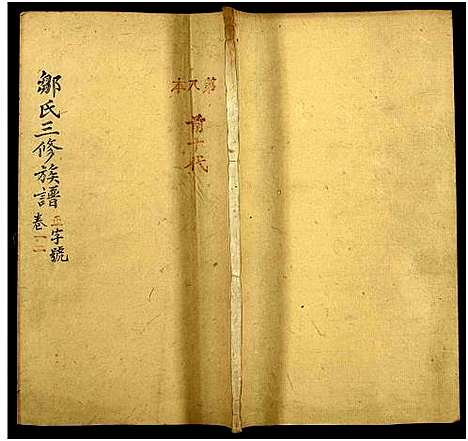 鄒氏三修族譜
正字號
卷一二
第八本
前十代